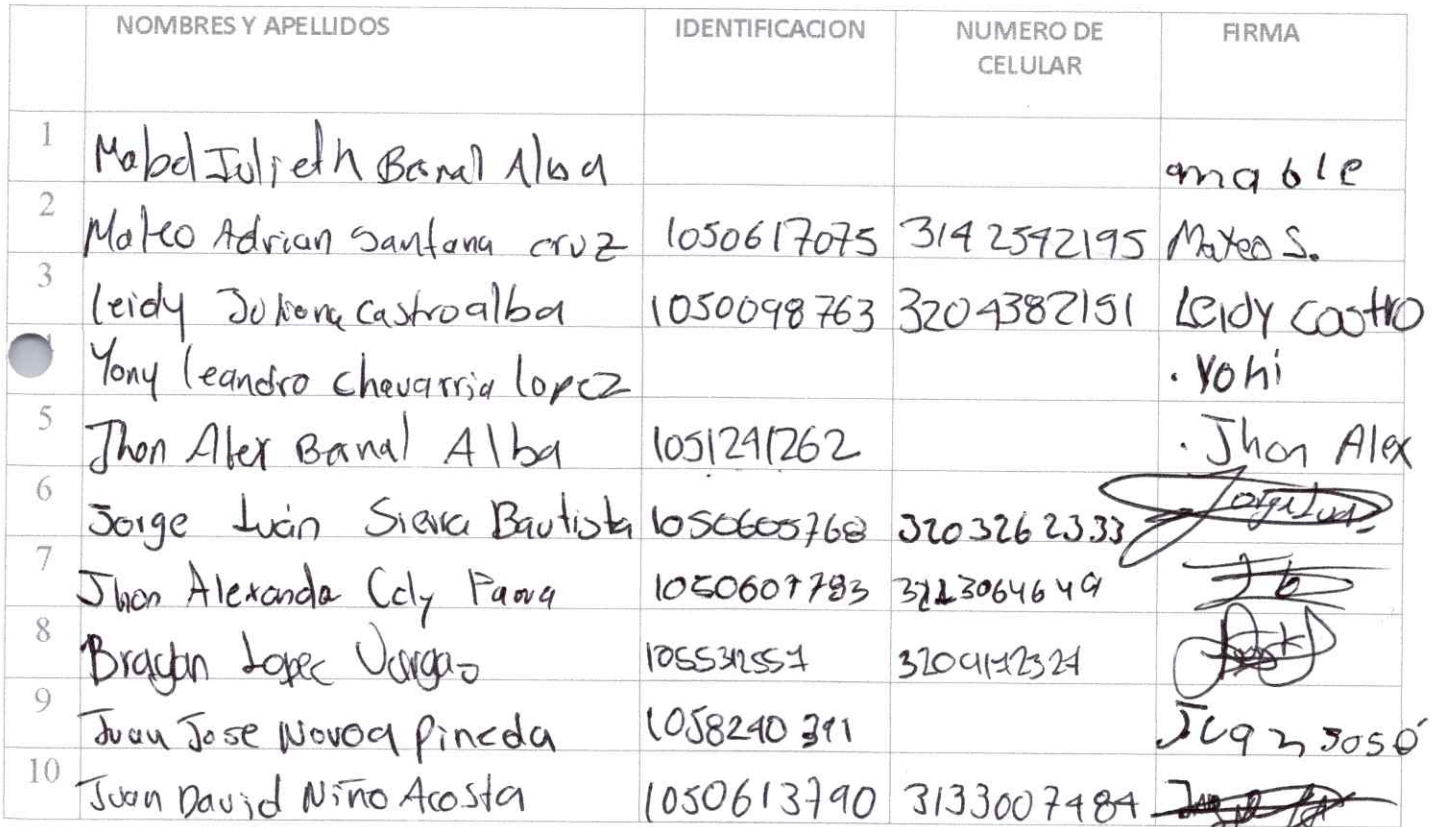 NOMBRES Y APELLIDOS IDENTIFICACION NUMERO DE CELULAR FIRMA
1 Mabel Julieth Bernal Alba mable
2 Mateo Adrian Santana cruz 1050617075 3142542195 Mateo S.
3 Leidy Juliana Castroalba 1050098763 3204382151 Leidy castro
Yony leandro chavarria lopez . Yohi
5 Jhon Alex Bernal Alba 1051241262 . Jhon Alex
6 Jorge Iván Sierra Bautista 1050605768 3203262333
7 Jhon Alexander Cely
8 Brayan Lopez Vargas
9 Juan Jose Novoa Pineda 1058240 Juan José
10 Juan David Niño Acosta 1050613790 3133007484